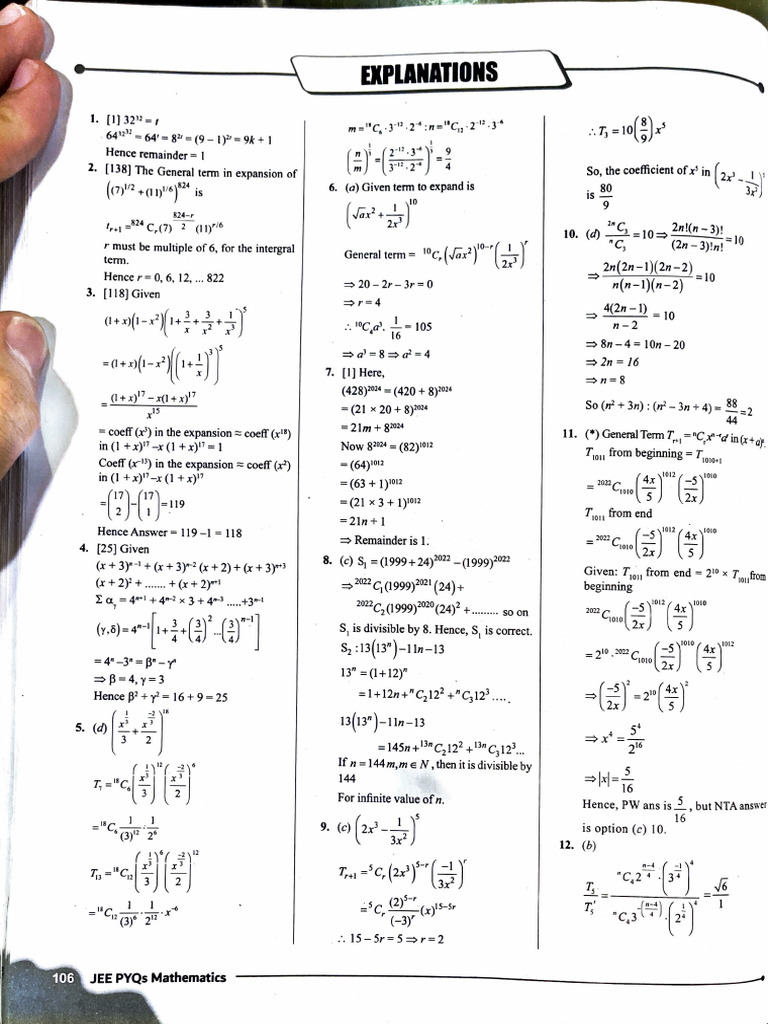 EXPLANATIONS
1. [1] 32³² = t
64^32^32 = 64^t = 8^2t = (9 – 1)^2t = 9k + 1
Hence remainder = 1
2. [138] The General term in expansion of
((7)^1/2 + (11)^1/6)^824 is
t_r+1 = ^824 C_r (7)^(824–r)/2 (11)^r/6
r must be multiple of 6, for the intergral
term.
Hence r = 0, 6, 12, ... 822
3. [118] Given
(1+x)(1–x²)(1 + 3/x + 3/x² + 1/x³)^5
= (1+x)(1–x²)((1 + 1/x)³)^5
= ((1+x)^17 – x(1+x)^17)/x^15
= coeff (x³) in the expansion ≈ coeff (x^18)
in (1 + x)^17 –x (1 + x)^17 = 1
Coeff (x^–13) in the expansion ≈ coeff (x²)
in (1 + x)^17 –x (1 + x)^17
= (17 2) – (17 1) = 119
Hence Answer = 119 –1 = 118
4. [25] Given
(x + 3)^n–1 + (x + 3)^n–2 (x + 2) + (x + 3)^n+3
(x + 2)² + ....... + (x + 2)^n+1
Σ α_γ = 4^n+1 + 4^n–2 × 3 + 4^n–3 .....+3^n–1
(γ,δ) = 4^n–1 [1 + 3/4 + (3/4)² ... (3/4)^n–1]
= 4^n –3^n = β^n – γ^n
⇒ β = 4, γ = 3
Hence β² + γ² = 16 + 9 = 25
5. (d) (x^1/3/3 + x^–2/3/2)^18
T_7 = ^18C_6 (x^1/3/3)^12 (x^–2/3/2)^6
= ^18C_6 1/(3)^12 · 1/2^6
T_13 = ^18C_12 (x^1/3/3)^6 (x^–2/3/2)^12
= ^18C_12 1/(3)^6 · 1/2^12 · x^–6
m = ^18C_6 · 3^–12 · 2^–6 : n = ^18C_12 · 2^–12 · 3^–6
(n/m)^1/3 = (2^–12 · 3^–6/3^–12 · 2^–6)^1/3 = 9/4
6. (a) Given term to expand is
(√ax² + 1/2x³)^10
General term = ^10C_r (√ax²)^10–r (1/2x³)^r
⇒ 20 – 2r – 3r = 0
⇒ r = 4
∴ ^10C_4a³ · 1/16 = 105
⇒ a³ = 8 ⇒ a² = 4
7. [1] Here,
(428)^2024 = (420 + 8)^2024
= (21 × 20 + 8)^2024
= 21m + 8^2024
Now 8^2024 = (82)^1012
= (64)^1012
= (63 + 1)^1012
= (21 × 3 + 1)^1012
= 21n + 1
⇒ Remainder is 1.
8. (c) S₁ = (1999 + 24)^2022 – (1999)^2022
⇒ ^2022C_1(1999)^2021 (24) +
^2022C_2(1999)^2020 (24)² + ......... so on
S₁ is divisible by 8. Hence, S₁ is correct.
S₂ : 13(13^n) – 11n – 13
13^n = (1+12)^n
= 1 + 12n + ^nC_2 12² + ^nC_3 12³ ....
13(13^n) – 11n – 13
= 145n + ^13nC_2 12² + ^13nC_3 12³...
If n = 144m, m ∈ N, then it is divisible by
144
For infinite value of n.
9. (c) (2x³ – 1/3x²)^5
T_r+1 = ^5C_r (2x³)^5–r (–1/3x²)^r
= ^5C_r (2)^5–r/(–3)^r (x)^15–5r
∴ 15 – 5r = 5 ⇒ r = 2
∴ T_3 = 10(8/9)x^5
So, the coefficient of x^5 in (2x³ – 1/3x²)^5
is 80/9
10. (d) ^2nC_3/^nC_3 = 10 ⇒ 2n!(n–3)!/(2n–3)!n! = 10
⇒ 2n(2n–1)(2n–2)/n(n–1)(n–2) = 10
⇒ 4(2n–1)/n–2 = 10
⇒ 8n – 4 = 10n – 20
⇒ 2n = 16
⇒ n = 8
So (n² + 3n) : (n² – 3n + 4) = 88/44 = 2
11. (*) General Term T_r+1 = ^nC_r x^n–r d in (x + a)^n.
T_1011 from beginning = T_1010+1
= ^2022C_1010 (4x/5)^1012 (–5/2x)^1010
T_1011 from end
= ^2022C_1010 (–5/2x)^1012 (4x/5)^1010
Given: T_1011 from end = 2^10 × T_1011 from
beginning
^2022C_1010 (–5/2x)^1012 (4x/5)^1010
= 2^10 · ^2022C_1010 (–5/2x)^1010 (4x/5)^1012
⇒ (–5/2x)² = 2^10 (4x/5)²
⇒ x^4 = 5^4/2^16
⇒ |x| = 5/16
Hence, PW ans is 5/16, but NTA answer
is option (c) 10.
12. (b)
T_5/T_5' = ^nC_4 2^(n–4)/4 · (3^–1/4)^4/^nC_4 3^–((n–4)/4) · (2^1/4)^4 = √6/1
106 JEE PYQs Mathematics